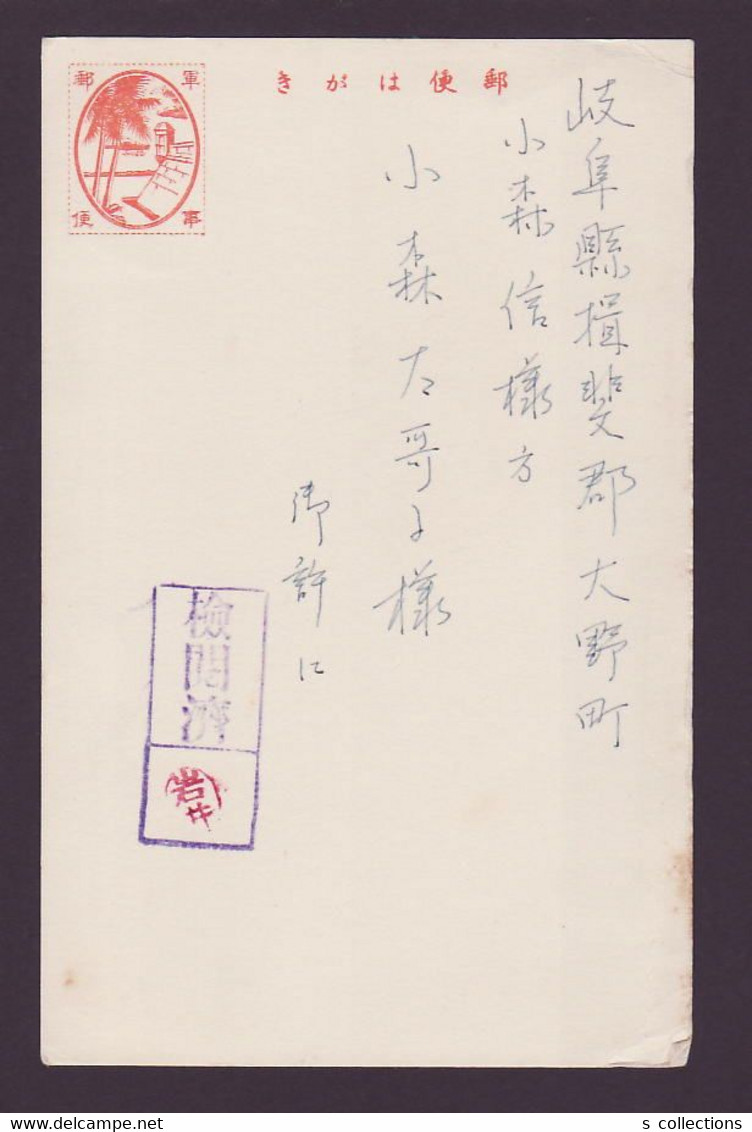 郵便はがき
軍事
郵便
岐阜縣揖斐郡大野町
小森信様方
小森大哥子様
御許に
檢閲濟
岩井
s collections